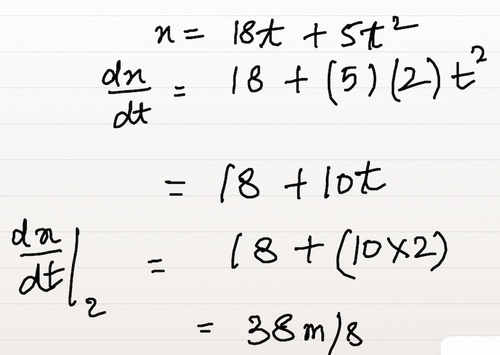 x = 18t + 5t²
dx/dt = 18 + (5)(2)t²
= 18 + 10t
dx/dt|₂ = 18 + (10×2)
= 38m/s